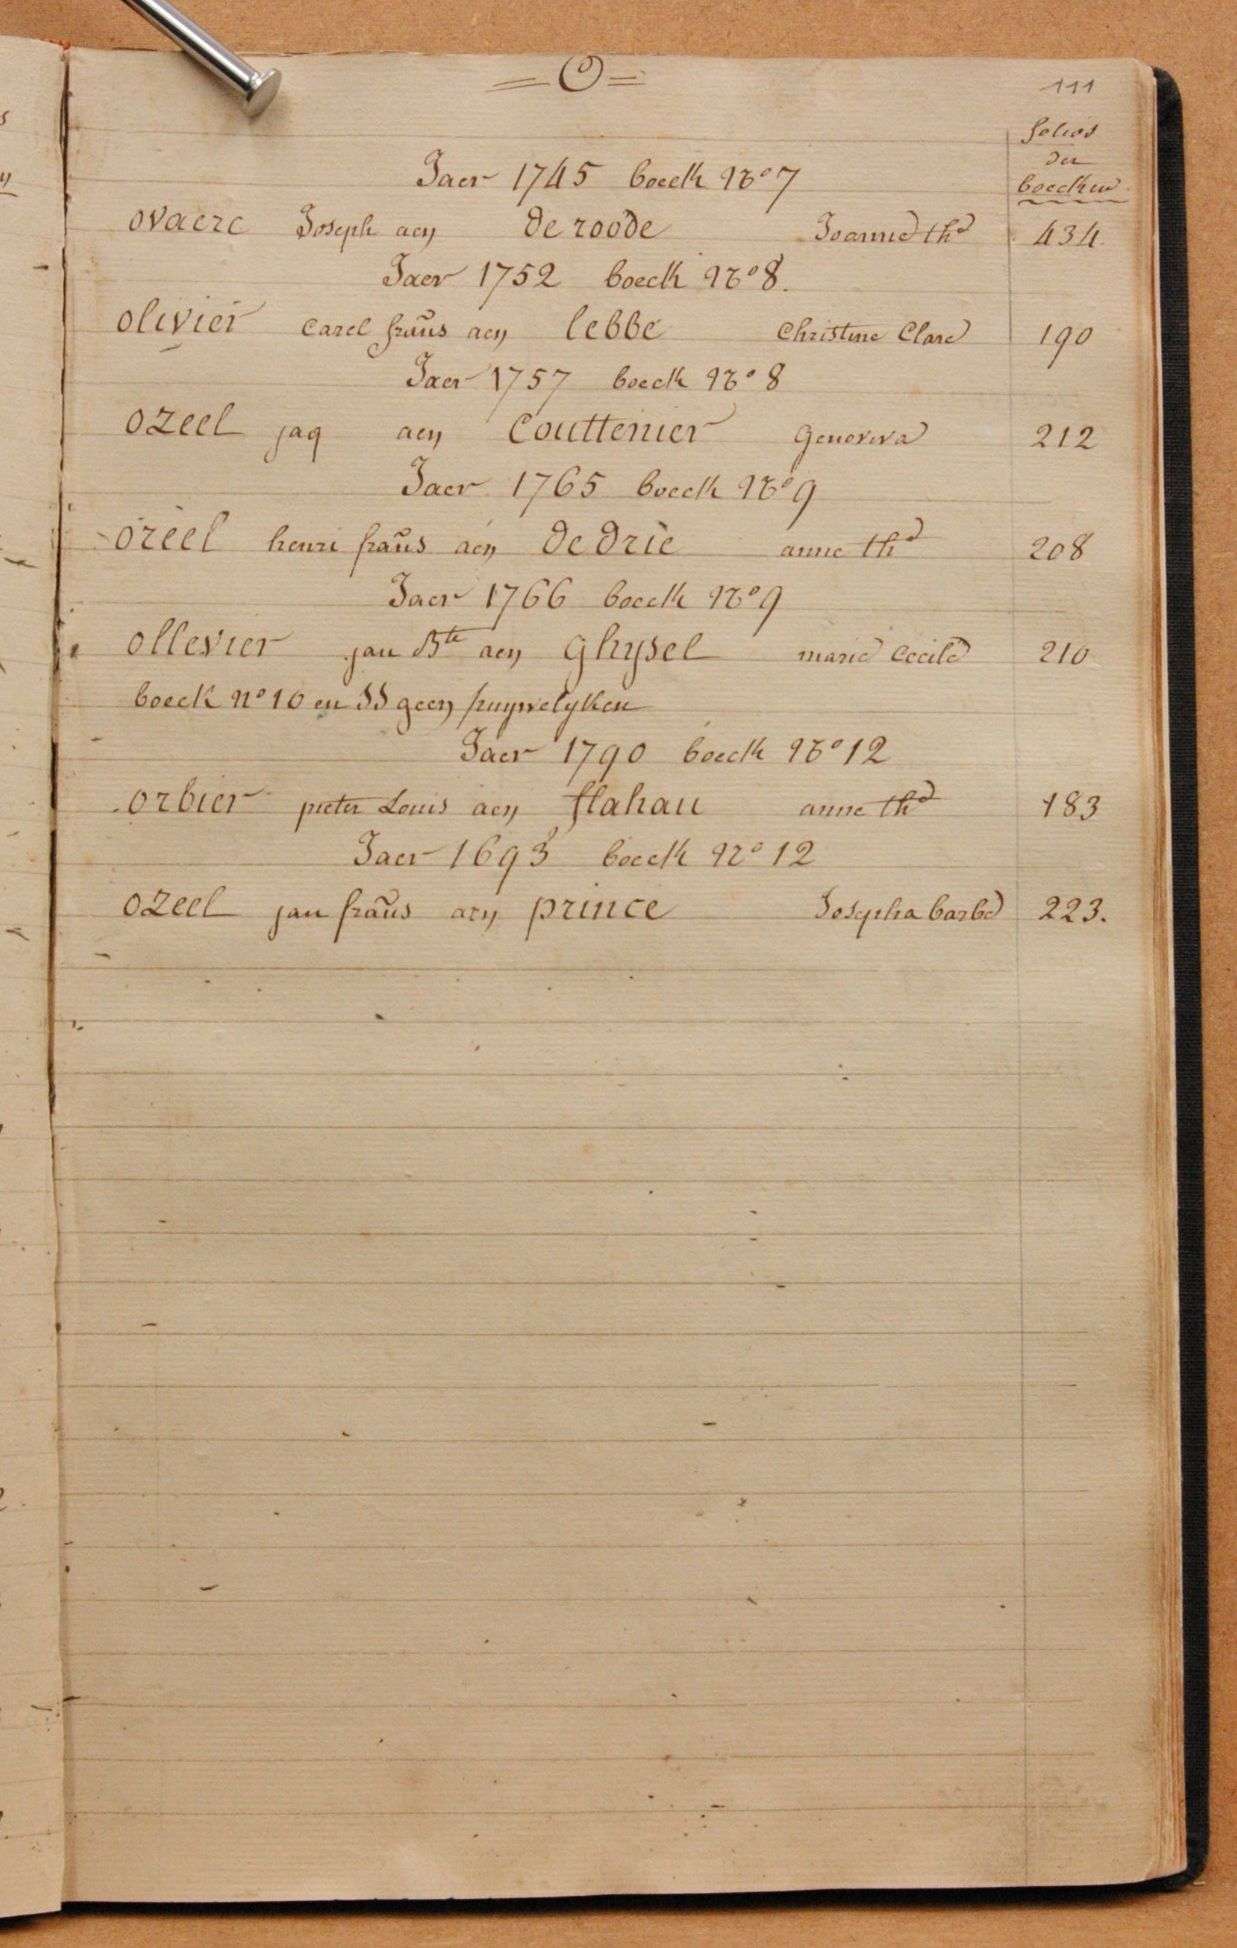 = O =
111
folios
der
boecken
Jaer 1745 boeck No 7
ovaere Joseph aen de roode Joanne thé 434
Jaer 1752 boeck No 8.
olivier Carel fraus aen lebbe Christine Clare 190
Jaer 1757 boeck No 8
ozeel jaq aen Couttenier Genoveva 212
Jaer 1765 boeck No 9
ozeel henri fraus aen de drie anne thé 208
Jaer 1766 boeck No 9
ollevier jan Bte aen ghysel marie Cecile 210
boeck no 10 en 11 geen huywelyken
Jaer 1790 boeck No 12
orbier pieter Louis aen flahau anne thé 183
Jaer 1693 boeck No 12
ozeel jan fraus aen prince Josepha barbe 223.